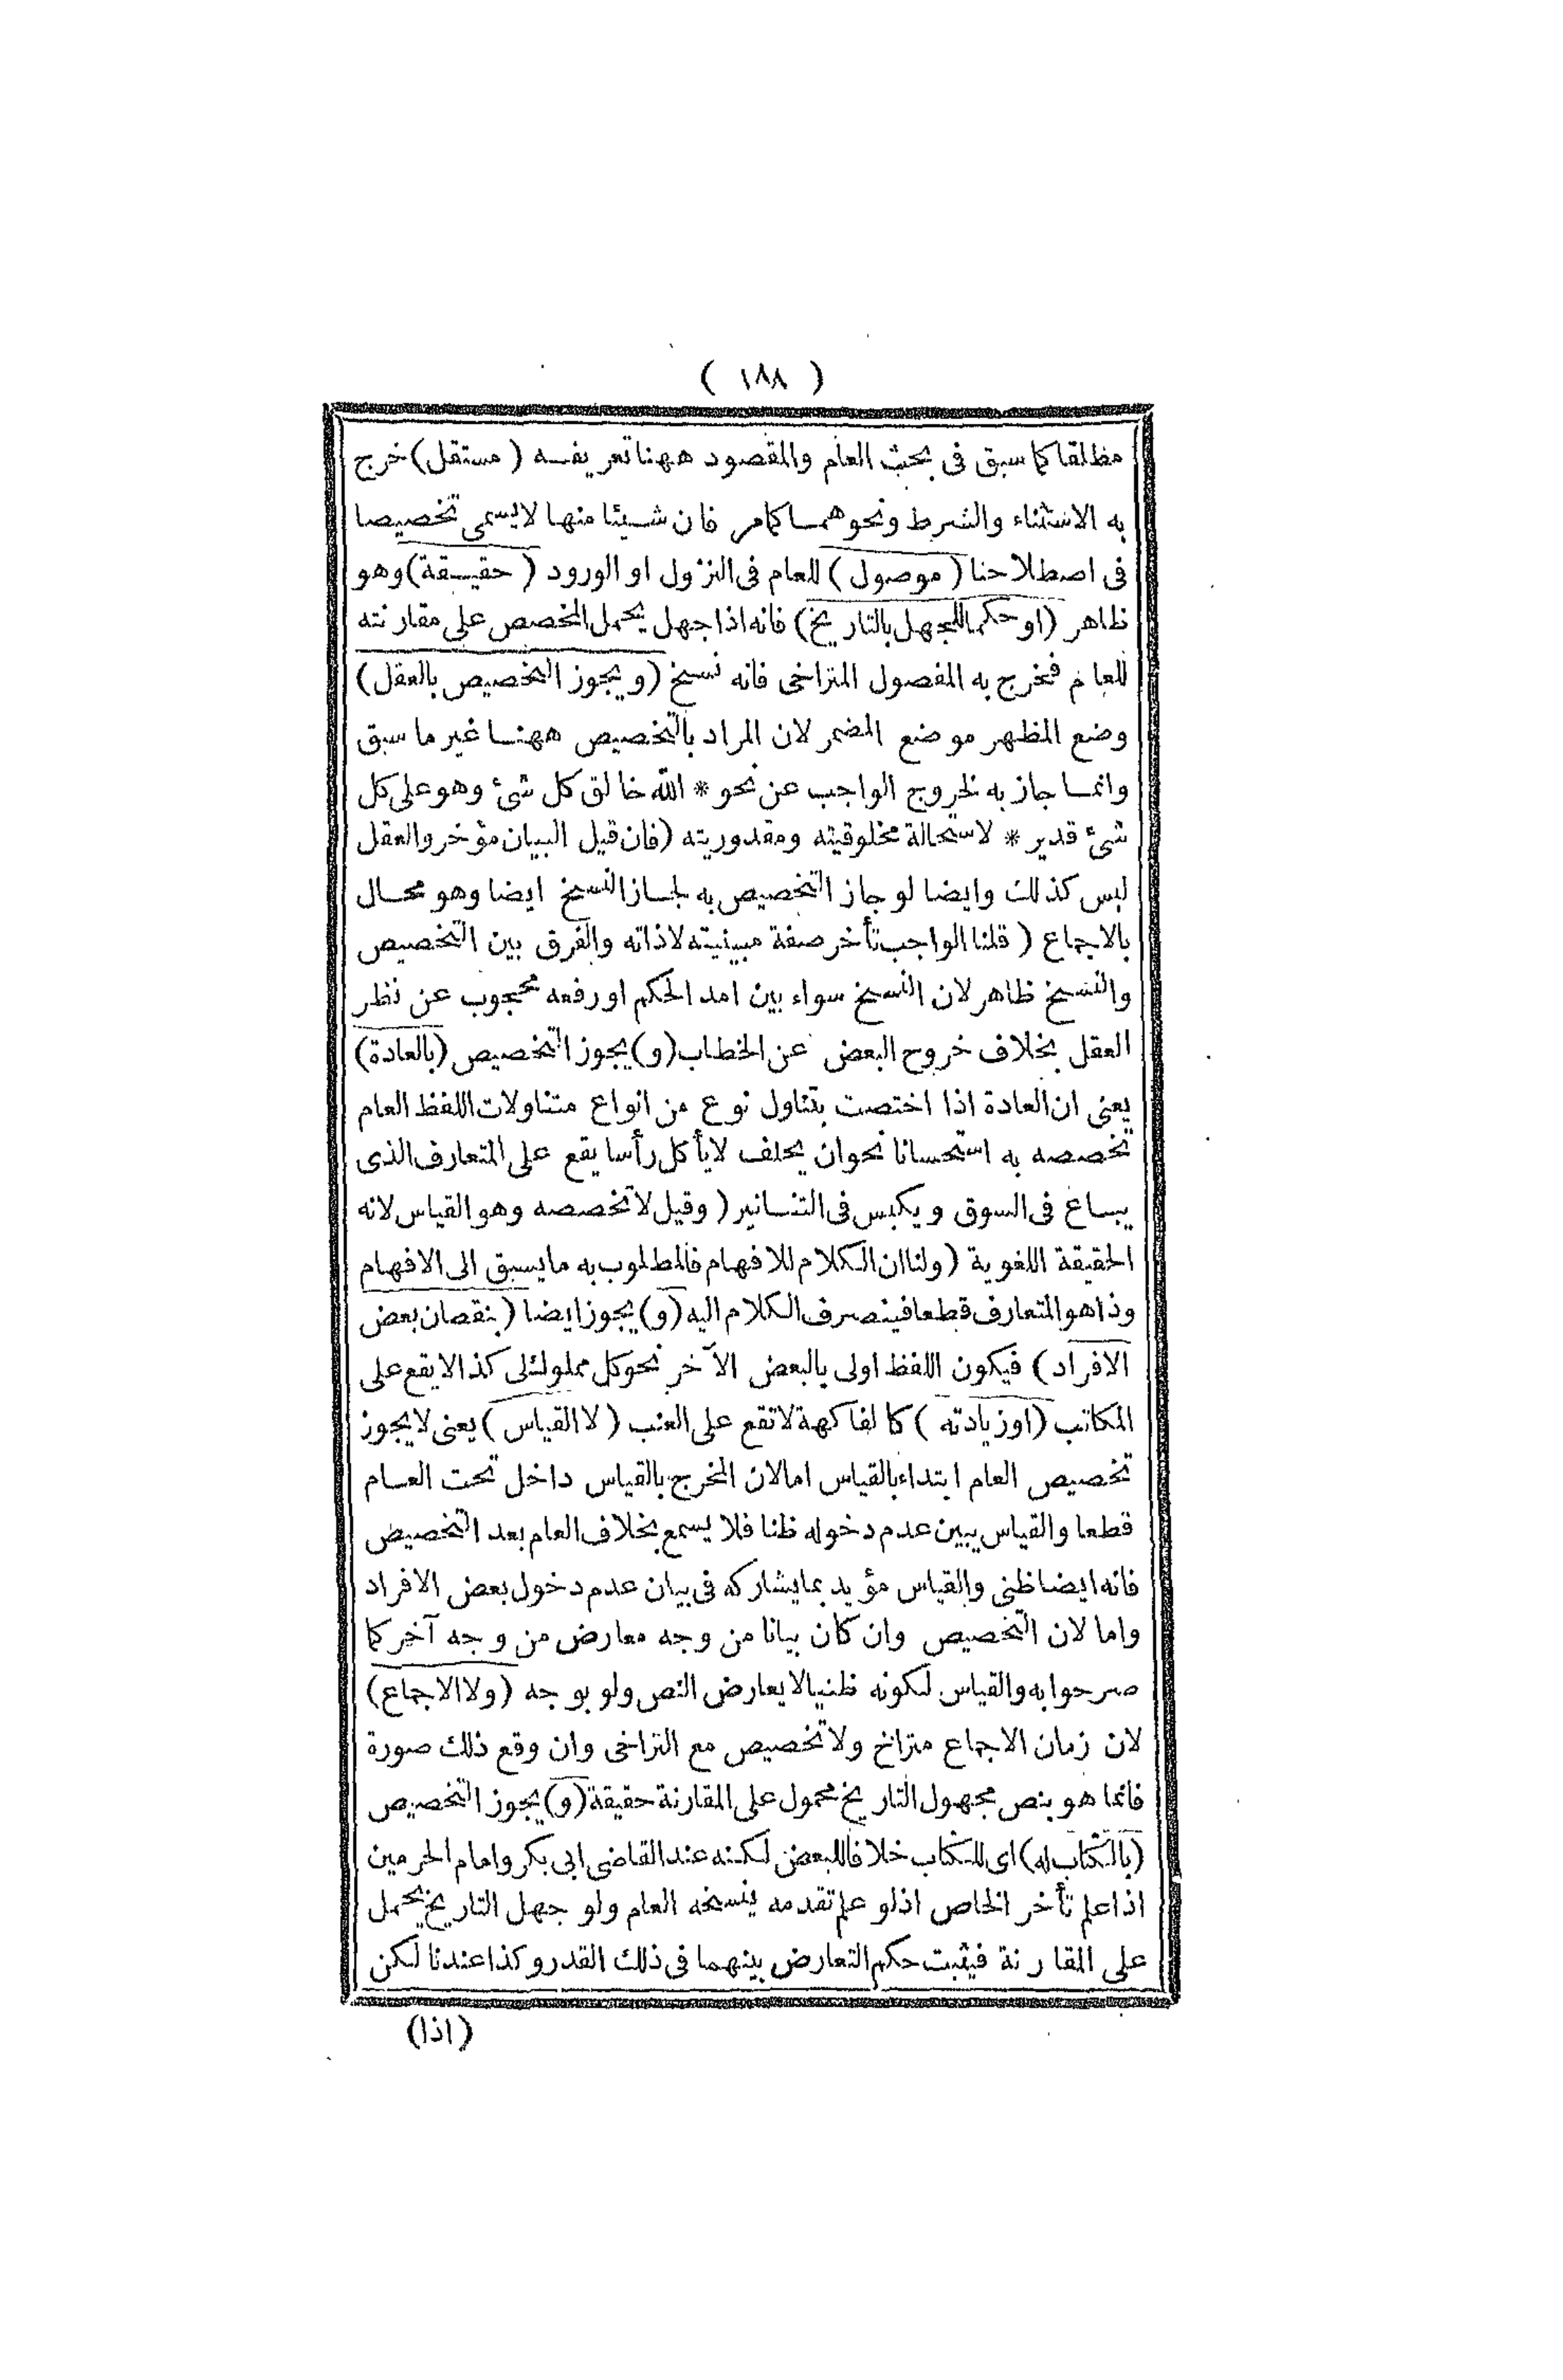 ( ١٨٨ )
مطلقا كما سبق فى بحث العام والمقصود ههنا تعريفه ( مستقل ) خرج
به الاستثناء والشرط ونحوهما كمامر فان شيئا منها لا يسمى تخصيصا
فى اصطلاحنا ( موصول ) للعام فى النزول او الورود ( حقيقة ) وهو
ظاهر ( او حكما للجهل بالتاريخ ) فانه اذا جهل يحمل المخصص على مقارنته
للعام فخرج به المفصول المتراخى فانه نسخ ( ويجوز التخصيص بالعقل )
وضع المظهر موضع المضمر لان المراد بالتخصيص ههنا غير ما سبق
وانما جاز به لخروج الواجب عن نحو * الله خالق كل شئ وهو على كل
شئ قدير * لاستحالة مخلوقيته ومقدوريته ( فان قيل البيان مؤخر والعقل
ليس كذلك وايضا لو جاز التخصيص به لجاز النسخ ايضا وهو محال
بالاجماع ( قلنا الواجب تأخر صفة مبينيته لا ذاته والفرق بين التخصيص
والنسخ ظاهر لان النسخ سواء بين امد الحكم او رفعه محجوب عن نظر
العقل بخلاف خروج البعض عن الخطاب ( و ) يجوز التخصيص ( بالعادة )
يعنى ان العادة اذا اختصت بتناول نوع من انواع متناولات اللفظ العام
تخصصه به استحسانا نحو ان يحلف لا يأكل رأسا يقع على المتعارف الذى
يباع فى السوق ويكبس فى التنانير ( وقيل لا تخصصه وهو القياس لانه
الحقيقة اللغوية ( ولنا ان الكلام للافهام فالمطلوب به ما يسبق الى الافهام
وذا هو المتعارف قطعا فينصرف الكلام اليه ( و ) يجوز ايضا ( بنقصان بعض
الافراد ) فيكون اللفظ اولى بالبعض الآخر نحو كل مملوك لى كذا لا يقع على
المكاتب ( او زيادته ) كالفاكهة لا تقع على العنب ( لا القياس ) يعنى لا يجوز
تخصيص العام ابتداء بالقياس اما لان المخرج بالقياس داخل تحت العام
قطعا والقياس يبين عدم دخوله ظنا فلا يسمع بخلاف العام بعد التخصيص
فانه ايضا ظنى والقياس مؤيد بما يشاركه فى بيان عدم دخول بعض الافراد
واما لان التخصيص وان كان بيانا من وجه معارض من وجه آخر كما
صرحوا به والقياس لكونه ظنيا لا يعارض النص ولو بوجه ( ولا الاجماع )
لان زمان الاجماع متراخ ولا تخصيص مع التراخى وان وقع ذلك صورة
فانما هو بنص مجهول التاريخ محمول على المقارنة حقيقة ( و ) يجوز التخصيص
( بالكتاب له ) اى للكتاب خلافا للبعض لكنه عند القاضى ابى بكر وامام الحرمين
اذا علم تأخر الخاص اذ لو علم تقدمه ينسخه العام ولو جهل التاريخ يحمل
على المقارنة فيثبت حكم التعارض بينهما فى ذلك القدر وكذا عندنا لكن
(اذا)